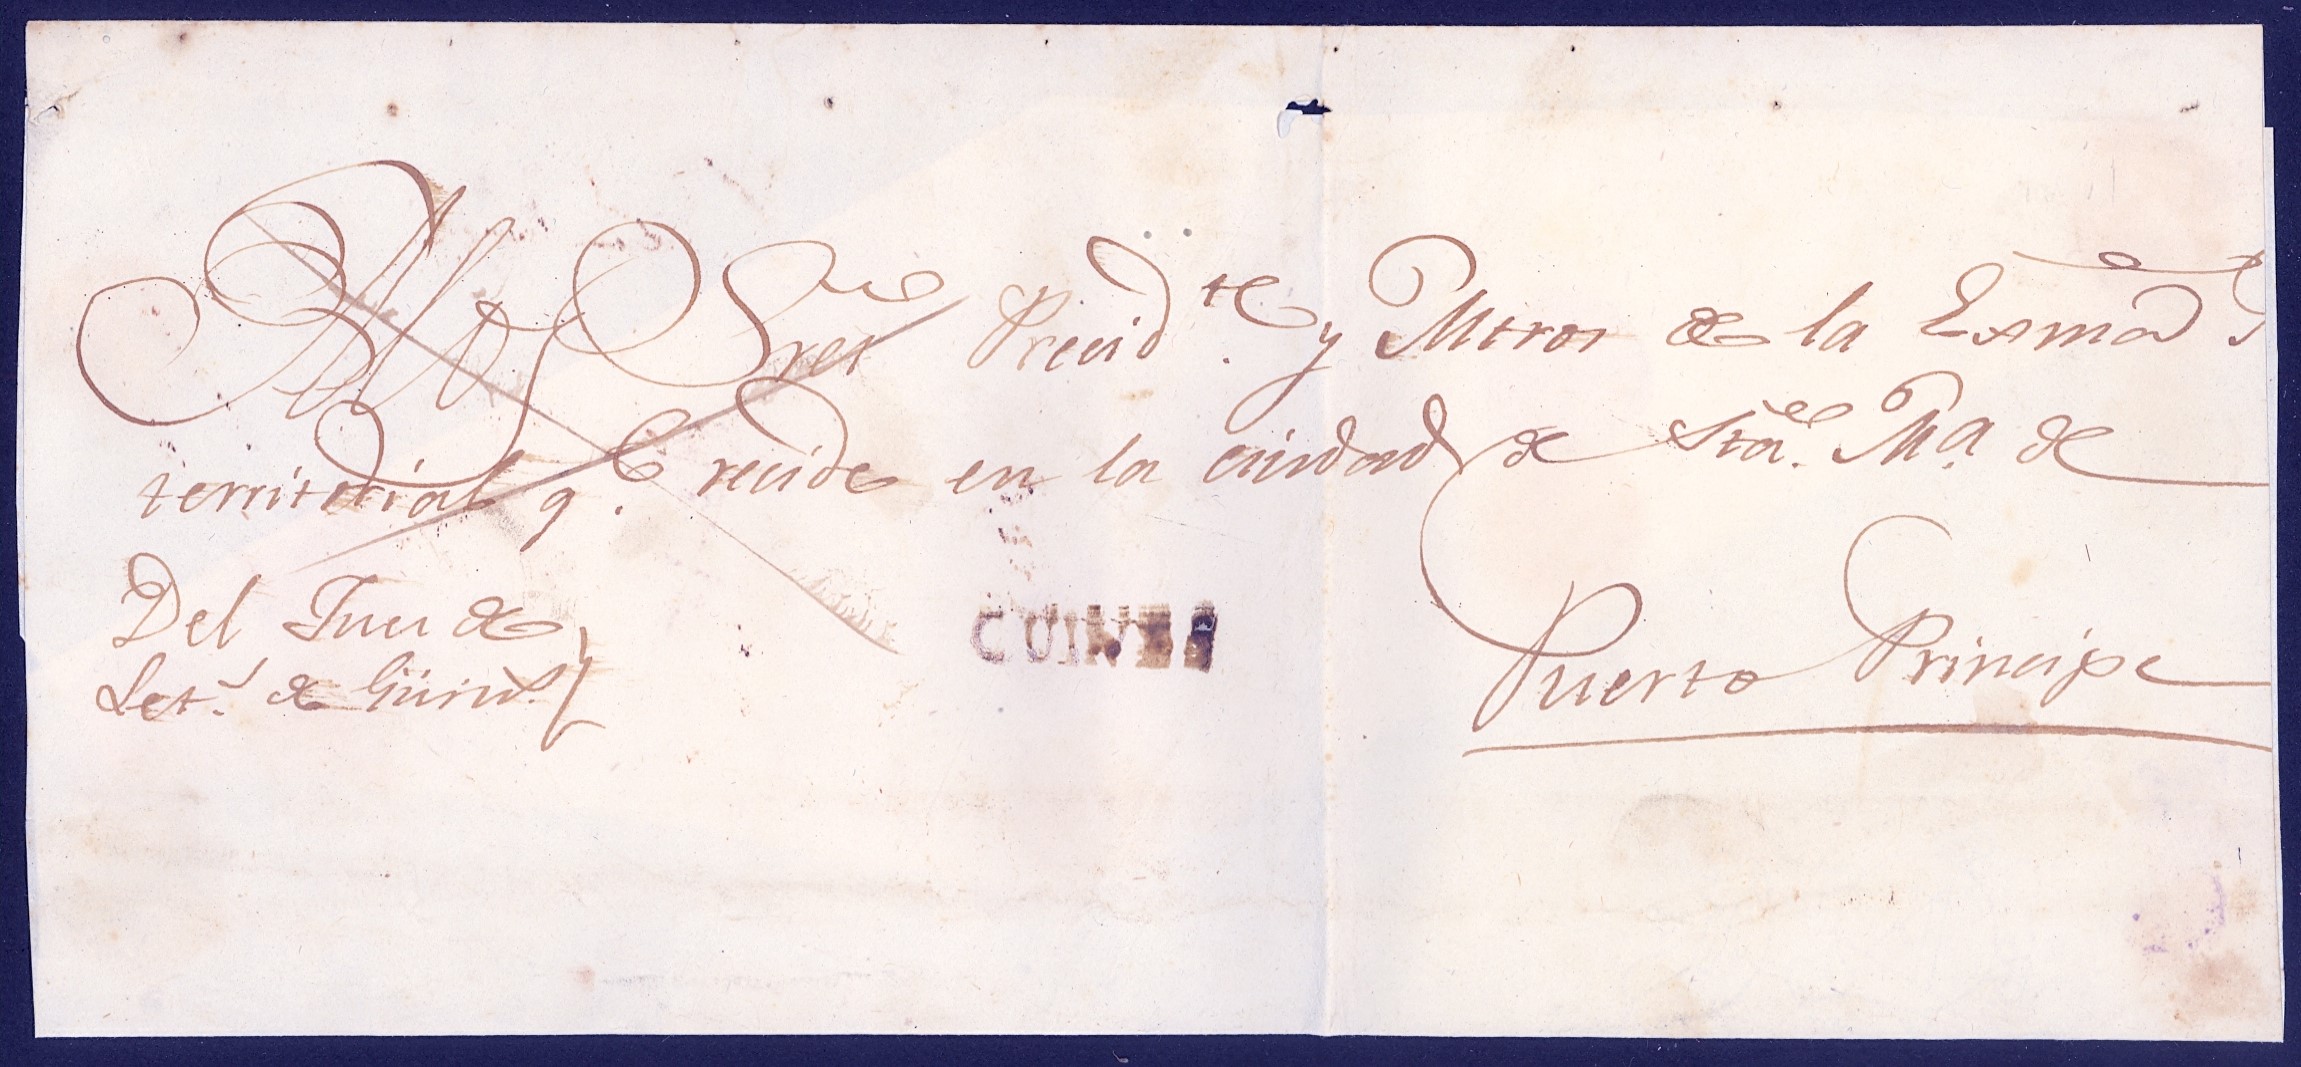 A los Sres Precid.te y Mtros de la Exma
territorial q.e recide en la ciudad de Sta. Ma. de
Puerto Principe
Del Juez de
Let.s de Güines
GUINES